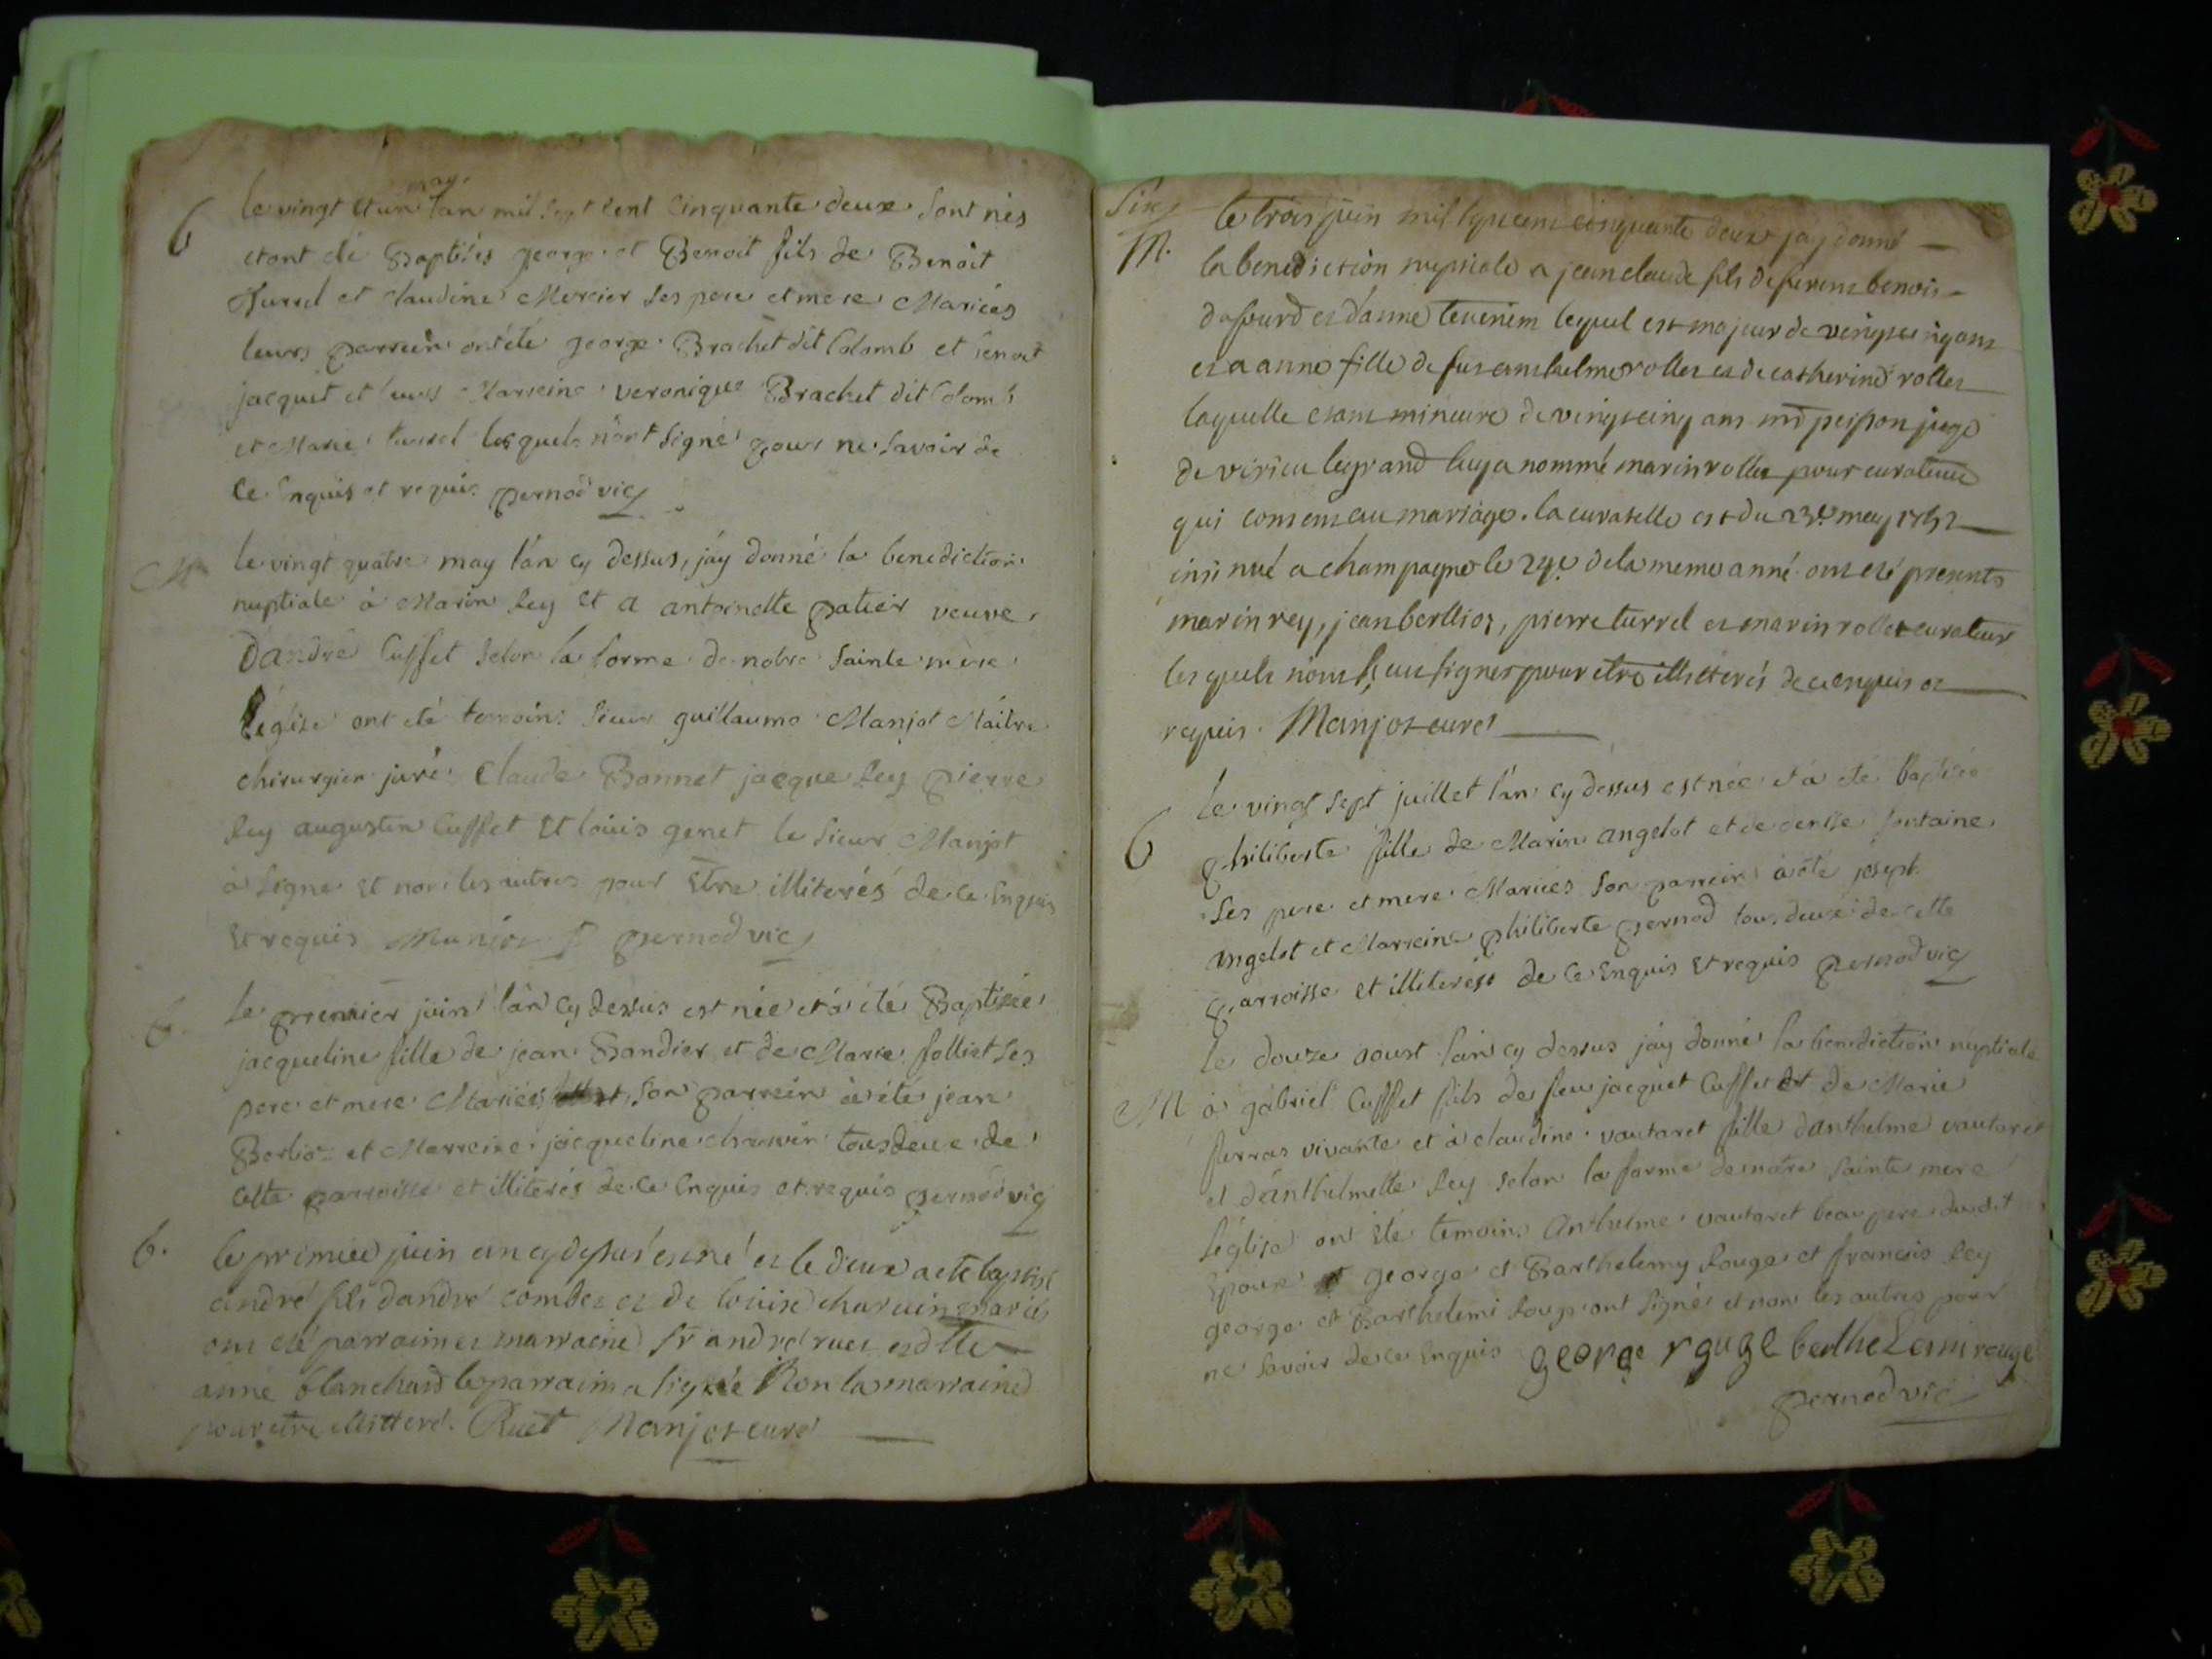 b
may
le vingt et un l'an mil sept cent cinquante deux sont nés
et ont été Baptisés george et Benoit fils de Benoit
Turrel et claudine Mercier ses pere et mere Mariées
leurs parrein ont été george Brachet dit Colomb et benoit
jacquet et leurs Marreine veronique Brachet dit Colomb
et Marie turrel lesquels n'ont signé pour ne savoir de
ce Enquis et requis pernod vic
M
le vingt quatre may l'an cy dessus, j'ay donné la benediction
nuptiale à Marin Rey et a antoinette patier veuve
D'andré Cuffet selon la forme de notre sainte mere
L'église ont été temoins sieur guillaume Manjot Maître
chirurgien juré Claude Bonnet jacque Rey pierre
Rey augustin Cuffet et louis genet le sieur Manjot
à signé et non les autres pour être illiterés de ce Enquis
et requis Manjot pernod vic
b.
le premier juin l'an cy dessus est née et à été Baptisée
jacqueline fille de jean Bandier et de Marie folliet ses
pere et mere Mariées son parrein à été jean
Berlioz et Marreine jacqueline charvin tous deux de
cette parroisse et illiterés de ce Enquis et requis pernod vic
b.
le premier juin an cy dessus est né et le deux a eté baptisé
andré fils dandré combet et de louise charvin mariés
ont eté parrain et marraine Sr andré ruet et dlle
anne blanchard le parrain a signé Non la marraine
pour etre illitteré. Ruet Manjot curé
Six
M.
le trois juin mil sept cent cinquante deux jay donné
la benediction nuptiale a jean claude fils de feu benoit
dufourd et d'anne tevenin lequel est majeur de vingt cinq ans
et a anne fille de feu anthelme rollet et de catherine rollet
laquelle etant mineure de vingt cinq ans mr peysson juge
de virieu le grand luy a nommé marin rollet pour curateur
qui consent au mariage. la curatelle est du 23e may 1752
insinué a champagne le 24e de la meme anné ont eté presents
marin rey, jean berllioz, pierre turrel et marin rollet curateur
lesquels n'ont sçeu signer pour etre illitterés de ce enquis et
requis. Manjot curé
b
le vingt sept juillet l'an cy dessus est née et à été baptisée
philiberte fille de Marin angelot et de denise fontaine
ses pere et mere Mariées son parrein à été joseph
angelot et Marreine philiberte pernod tous deux de cette
parroisse et illiterés de ce Enquis et requis pernod vic
M
le douze aoust l'an cy dessus j'ay donné la benediction nuptiale
à gabriel Cuffet fils de feu jacquet Cuffet et de Marie
ferras vivante et à claudine vautaret fille d'anthelme vautaret
et d'anthelmette Rey selon la forme de notre sainte mere
l'église ont été temoins Anthelme vautaret beau pere dudit
Epoux george et Barthelemy Rouge et francois Rey
george et Barthelemi Rouge ont signés et non les autres pour
ne savoir de ce Enquis george rouge barthelemi rouge
pernod vic